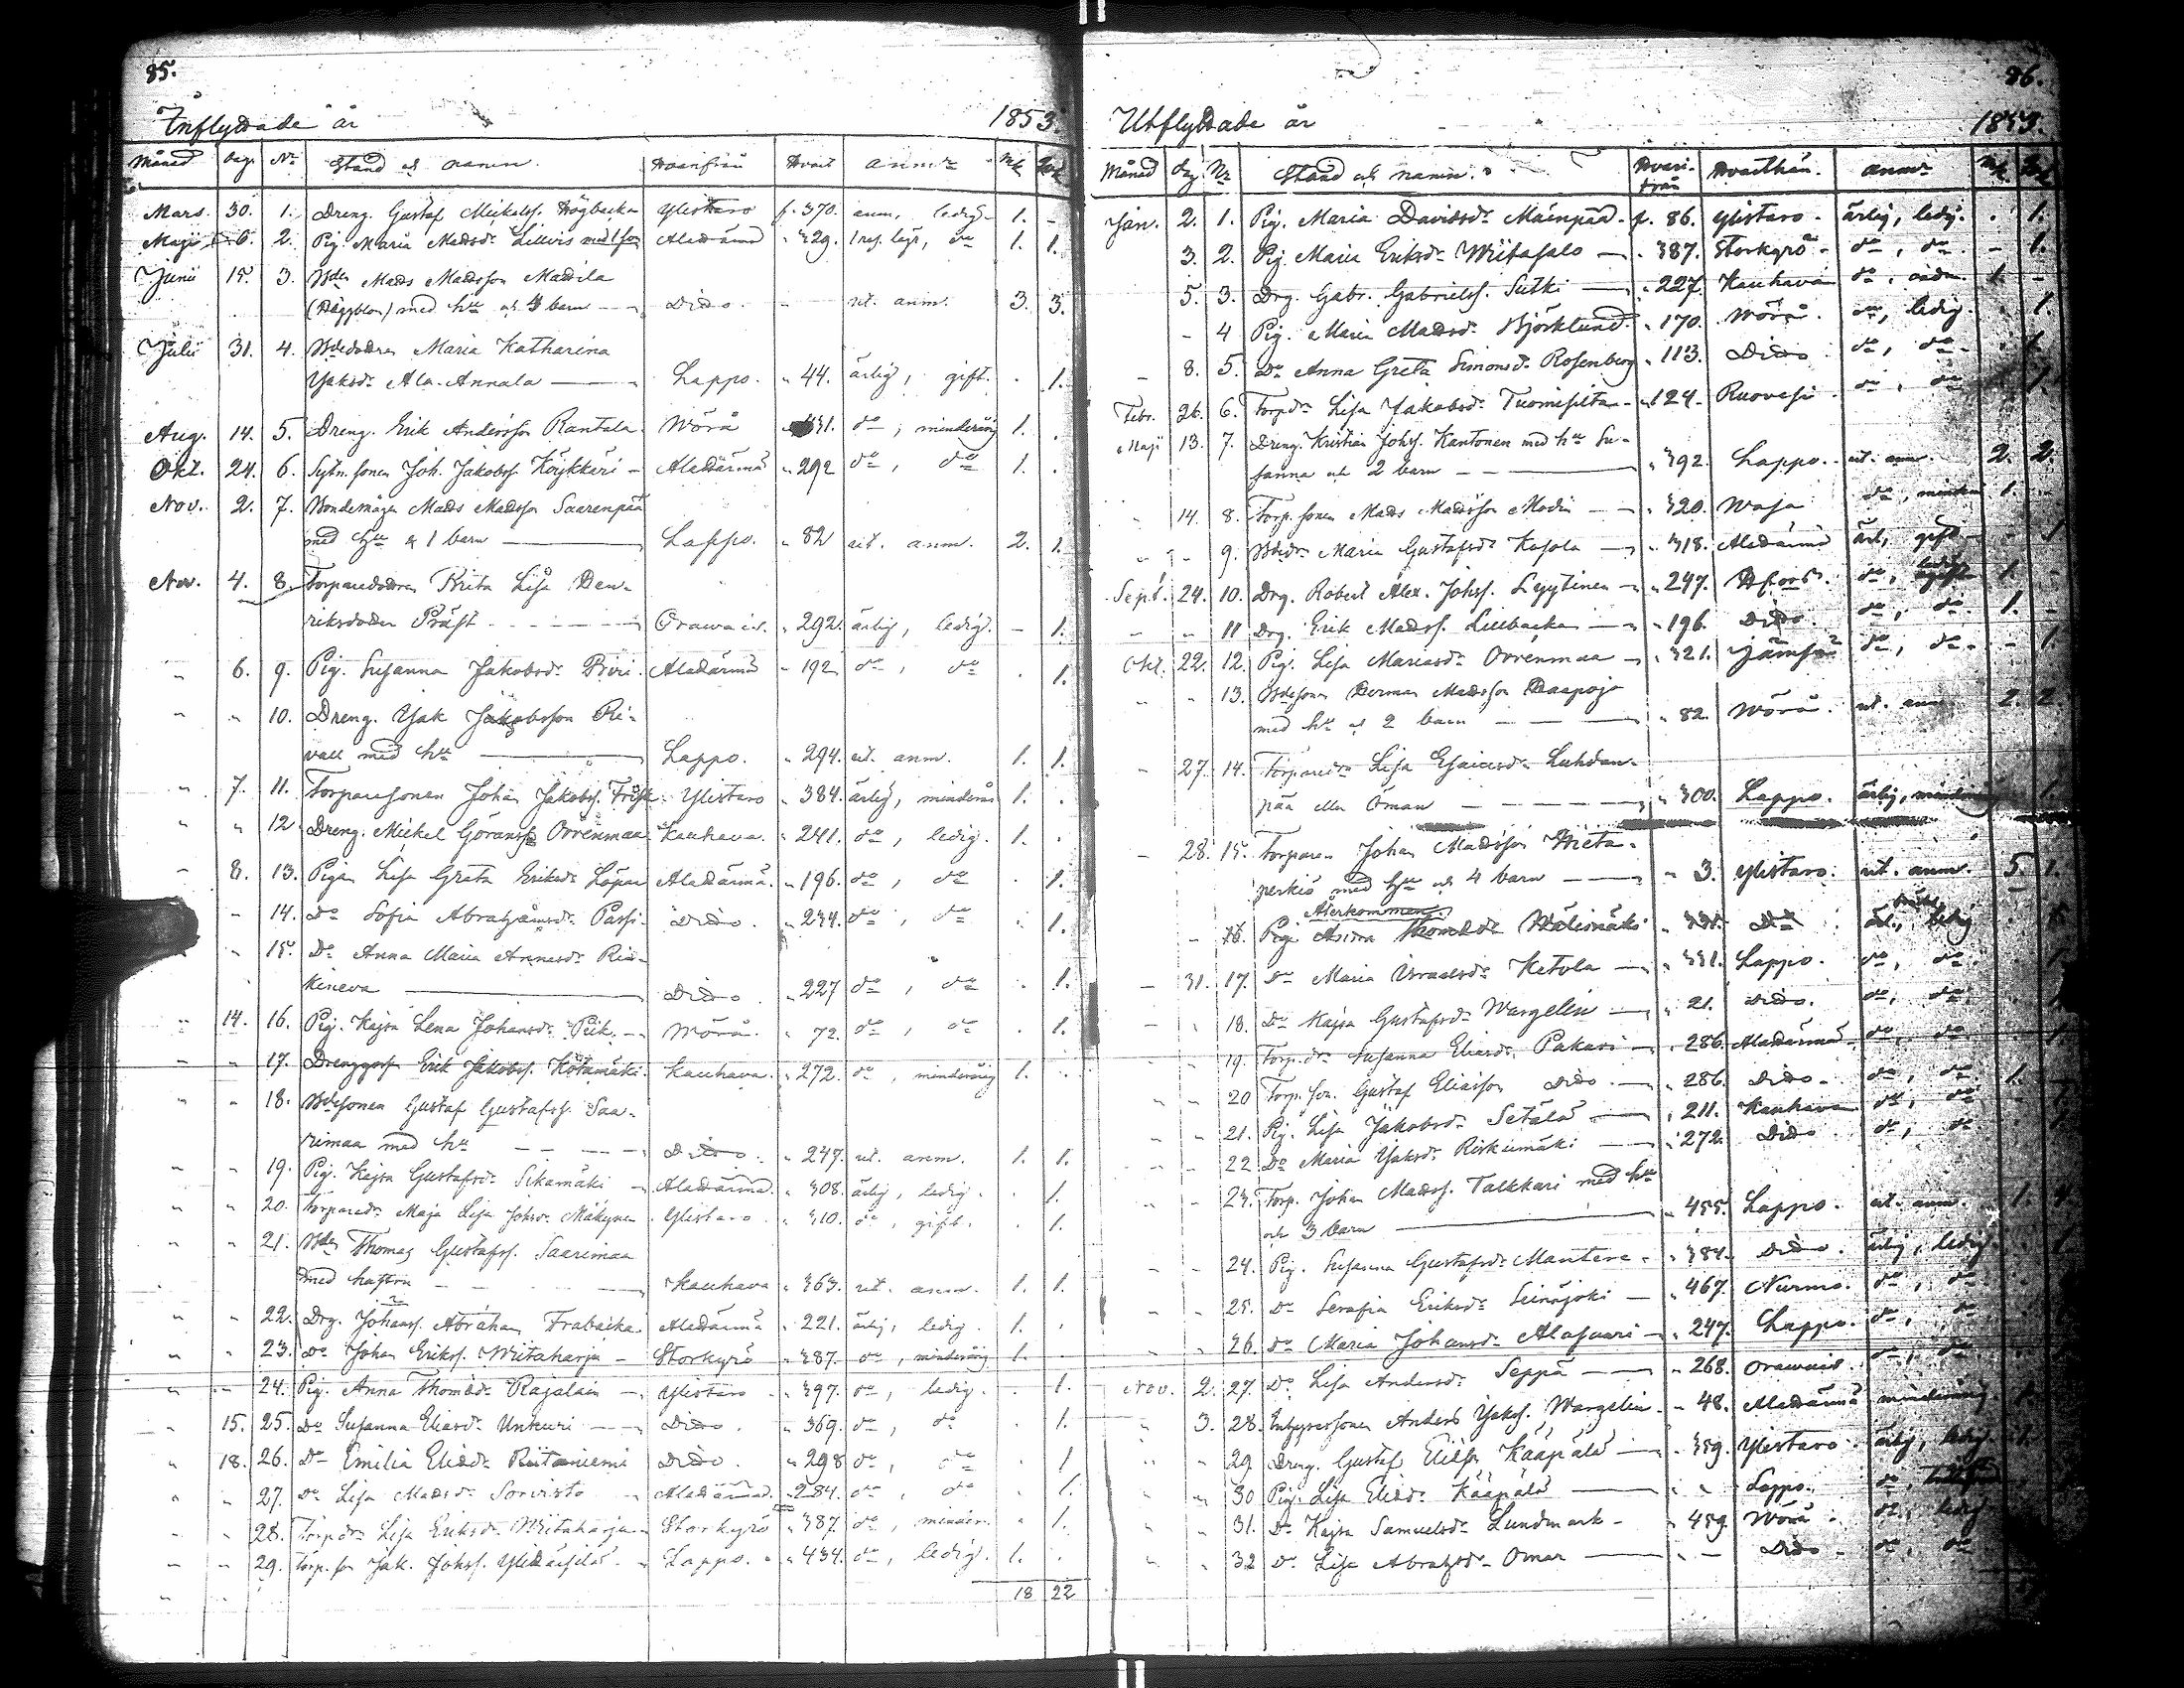 85.
Inflyttade år 1853.
Månad Dag. No Stånd och namn. Hvarifrån Hvart anmn Mk Qvk
Mars. 30. 1. Dreng. Gustaf Mickelss. Högbacka Ylistaro f. 370. anm, ledig. 1. -
Maji 6. 2. Pig. Maria Madsdr Lillvis med 1 son Alahärmä " 329. 1 res. lägr, do 1. 1.
Junii 15. 3. Bden Mads Madsson Mattila
(Häggblom) med hu och 4 barn Ditto. - ut. anm. 3. 3.
Julii 31. 4. Bdedottren Maria Katharina
Isaksdr Ala-Annala Lappo. " 44. ärlig, gift. . 1.
Aug. 14. 5. Dreng. Erik Andersson Rantala Wörå 331. do, minderårig 1. .
Okt. 24. 6. Sytn. sonen Joh. Jakobss. Köykkäri - Alahärmä " 292 do, do 1. .
Nov. 2. 7. Bondemågen Mads Madsson Saarenpää
med hu & 1 barn Lappo. " 82 ut. anm. 2. 1.
Nov. 4. 8. Torparedottren Brita Lisa Hen-
riksdotter Präst Orawais. " 292. ärlig, ledig. - 1.
" 6. 9. Pig. Susanna Jakobsdr Alahärmä " 192 do, do . 1.
" " 10. Dreng. Isak Jakobsson Ri-
vall med hu Lappo. " 294. ut. anm. 1. 1.
" 7. 11. Torparesonen Johan Jakobss. Frisk Ylistaro " 384. ärlig, minderår 1. .
" " 12 Dreng. Mickel Göransson Orrenmaa Kauhava. " 241. do, ledig. 1. .
" 8. 13. Pigan Lisa Greta Eriksdr Löpar Alahärmä. " 196. do, do . 1.
" - 14. Do Sofia Abrahamsdr Passi Ditto. " 234. do, do . 1.
" 15. Do Anna Maria Arnesdr Rin-
kineva Ditto. " 227 do, do . 1.
" 14. 16. Pig. Kajsa Lena Johansdr Piik. Wörå. " 72. do, do . 1.
" " 17. Drenggoss. Erik Jakobss. Kötämäki. Kauhava. " 272. do, minderårig 1. .
" " 18. Bdesonen Gustaf Gustafss. Saa-
rimaa med hu Ditto. " 247. ut. anm. 1. 1.
" " 19. Pig. Kajsa Gustafsdr Sikamäki - Alahärmä. " 308. ärlig, ledig. . 1.
" " 20. Torparedr Maja Lisa Johsdr Mäkynen Ylistaro. " 310. do, gift. . 1.
" " 21. Bden Thomas Gustafss. Saarimaa
med hustru Kauhava " 363. ut. anm. 1. 1.
" " 22. Drg. Johanss. Abraham Frabacka Alahärmä " 221. ärlig, ledig. 1. .
" " 23. Do Johan Erikss. Wiitaharju - Storkyrö " 387. do, minderårig 1. .
" " 24. Pig. Anna Thomædr Rajalain - Ylistaro " 397. do, ledig. . 1.
" 15. 25. Do Susanna Eliædr Unkuri - Ditto. " 369. do, do . 1.
" 18. 26. Do Emilia Eliædr Riitaniemi Ditto. " 298 do, do . 1
" " 27. Do Lisa Madsdr Sorvisto Alahärmä. " 284. do, do . 1.
" " 28. Torpdr Lisa Eriksdr Wiitaharju Storkyrö " 387. do, minder. . 1.
" " 29. Torp. son Jak. Johss. - Lappo. " 434. do, ledig. 1. .
18 22
86.
Utflyttade år 1853.
Månad Dag No Stånd och namn. Hvari-från Hvarthän. anmn Mk Qvk
Jan. 2. 1. Pig. Maria Davidsdr Mäenpää f. 86. Ylistaro. ärlig, ledig. . 1.
3. 2. Pig. Maria Eriksdr Wiitasalo " 387. Storkyrö - do, do. - 1.
5. 3. Drg. Gabr. Gabrielss. Sutki " 227. Kauhava do, 1. -
- 4 Pig. Maria Madsdr Björklund " 170. Wörå. do, ledig. . 1.
- 8. 5. Do Anna Greta Simonsdr Rosenberg " 113. Ditto. do, do. . 1.
Febr. 26. 6. Torpdr Lisa Jakobsdr Tuomisilta " 124. Ruovesi do, do 1.
Maji 13. 7. Dreng. Kristian Johss. Kantonen med hu Su-
sanna och 2 barn " 392. Lappo. ut. anm. 2. 2.
14. 8. Torp. sonen Mads Madsson Modin " 320. Wasa do, 1. -
" - 9. Bdedr Maria Gustafsdr Kasola " 318. Alahärmä ärl, gift - 1
Sept. 24. 10. Drg. Robert Alex. Johss. Lyytinen " 247. Hfors. do, ledig 1. -
" " 11 Drg. Erik Madss. Lillbacka " 196. Ditto do, do. 1. -
Okt. 22. 12. Pig. Lisa Mariasdr Orrenmaa " 321. Jämsä do, do. - 1.
" " 13. Bdesonen Herman Madsson Haapoja
med hu och 2 barn " 82. Wörå. ut. anm 2. 2.
" 27. 14. Torparedr Lisa Esaiædr Luhdan-
pää eller Öman " 300. Lappo. ärlig, minderårig 1.
- 28. 15. Torparen Johan Madsson Wieta-
perkiö med hu och 4 barn " 3. Ylistaro. ut. anm. 5 1.
Återkommen.
- 16. Pig. Anna Thomædr Wälimäki " 331. Do ärl., ledig
- 31. 17. Do Maria Israelsdr Ketola " 331. Lappo. do, do.
" 18. Do Kajsa Gustafsdr Wargelin " 21. Ditto. do, do.
" 19. Torp.dr Susanna Eliædr Pakari " 286. Alahärmä do, do. 1
" " 20 Torp. son. Gustaf Eliasson Ditto. " 286. Ditto. do, do 1.
" " 21. Pig. Lisa Jakobsdr Setälä " 211. Kauhava do, do
" " 22 Do Maria Isaksdr Riskumäki " 272. Ditto do, do
" " 23. Torp. Johan Madss. Talkkari med hu
och 3 barn " 455. Lappo. ut. anm. 1. 4.
" " 24. Pig. Susanna Gustafsdr Mantere " 384. Ditto. ärlig, ledig.
" " 25. Do Serafia Eriksdr Seinäjoki " 467. Nurmo. do, do.
" " 26. Do Maria Johansdr Alasaari " 247. Lappo. do, do
Nov. 2. 27. Do Lisa Andersdr Seppä " 268. Orawais. do, do
" 3. 28. Anders Isakss. Wargelin " 48. Alahärmä minderårig 1.
" " 29. Dreng. Gustaf Eliass. Kääpälä " 359. Ylistaro. ärlig, ledig. 1.
" " 30 Pig. Lisa Eliædr Kääpälä " " Lappo. do,
" " 31. Do Kajsa Samuelsdr Lundmark " 459. Wörå do, ledig
" " 32 Do Lisa Abrahsdr Omar " - Ditto do, do